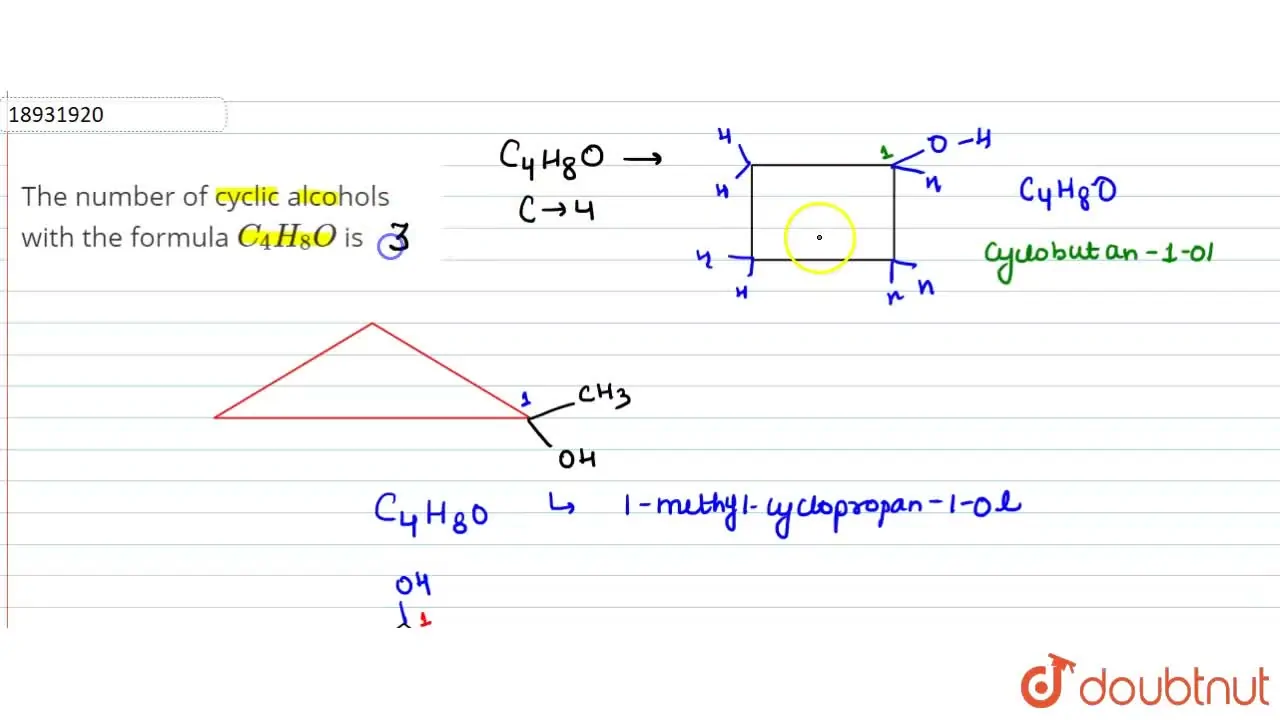 18931920
The number of cyclic alcohols
with the formula C₄H₈O is 3
C₄H₈O →
C → 4
H
H
H
H
1
O - H
H
H
H
C₄H₈O
Cyclobutan-1-ol
1
CH₃
OH
C₄H₈O
↳ 1-methyl-cyclopropan-1-ol
OH
1
doubtnut